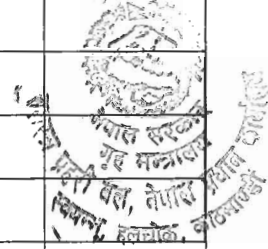 नेपाल सरकार
गृह मन्त्रालय
प्रहरी बल, नेपाल प्रधान कार्यालय
स्वयम्भू, हलचोक, काठमाण्डौ